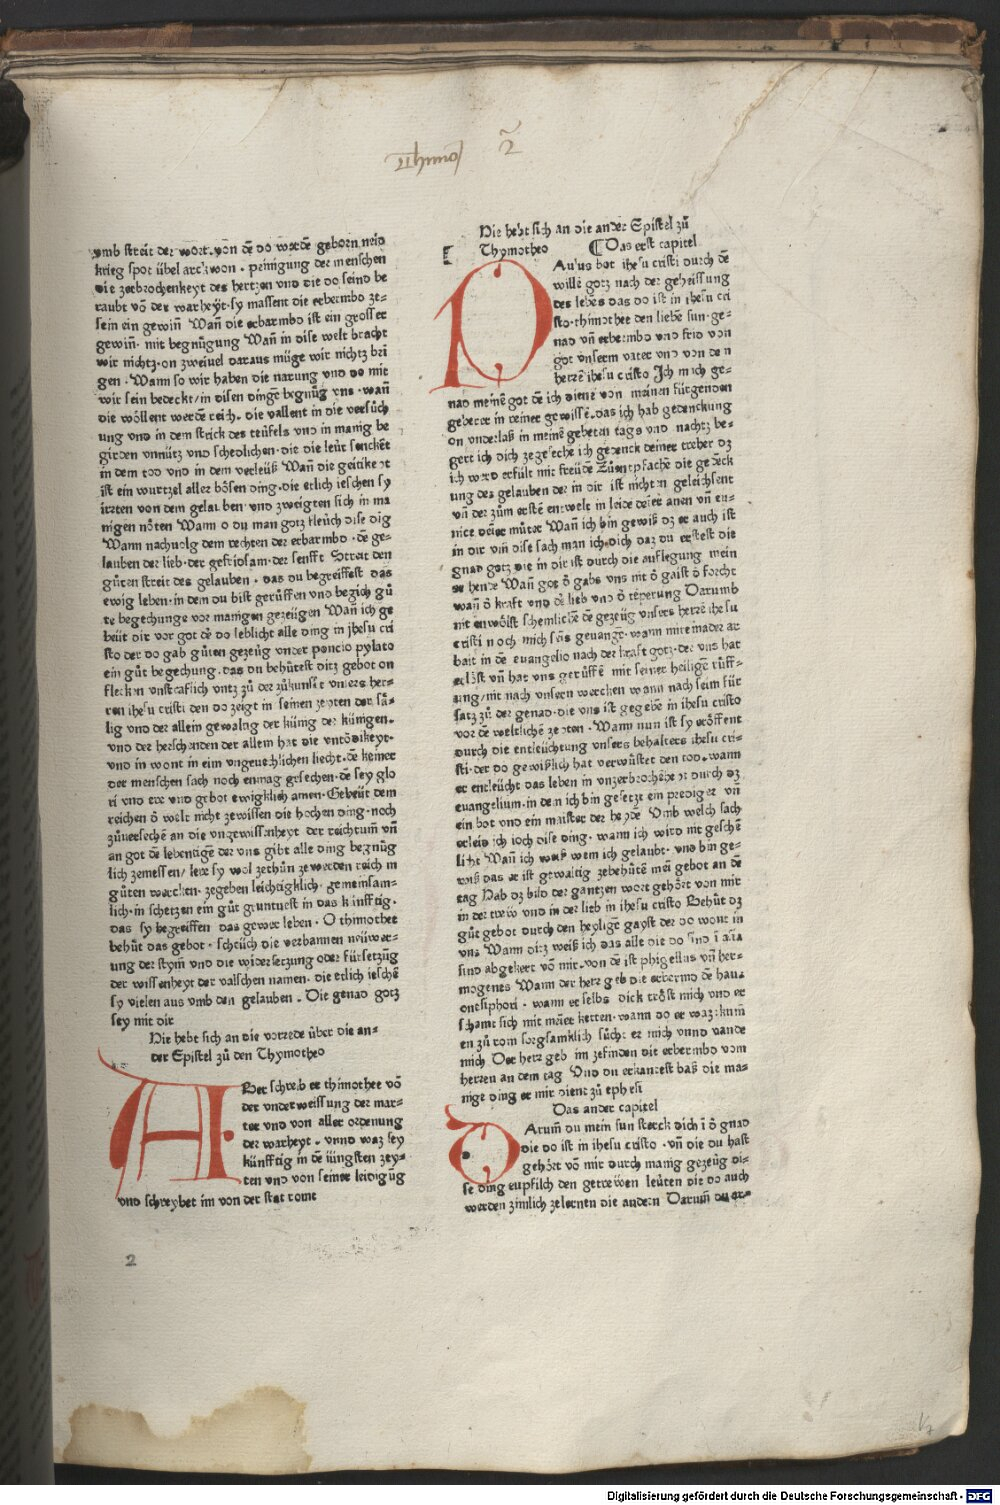 Thimoͦ 2
vmb streit der wort. von dē do werdē geborn neid
krieg spot übel arckwon. peinigung der menschen
die zerbrochenkeyt des hertzen vnd die do seind be
raubt vō der warheyt. sy massent die erbermbd ze-
sein ein gewiñ Wañ die erbarmbd ist ein grosser
gewiñ. mit begnügung Wañ in dise welt bracht
wir nichtz. on zweiuel daraus müge wir nichtz brī
gen. Wann so wir haben die narung vnd do mit
wir sein bedeckt/ in disen dingē begnüg vns. wañ
die wöllent werdē reich. die vallent in die versůch
ung vnd in dem strick des teüfels vnd in manig be
girden vnnütz vnd schedlichen. die die leüt senckēt
in dem tod vnd in dem verleüß Wañ die geitikeit
ist ein wurtzel aller bösen ding. die etlich ieschen sy
irrten von dem gelauben. vnd zweigten sich in ma
nigen nöten Wann o du man gotz fleüch dise dīg
Wann nachuolg dem rechten der erbarmbd. dē ge-
lauben der lieb. der gefridsam. der senfft Streit den
gůten streit des gelauben. das du begreiffest das
ewig leben. in dem du bist gerüffen vnd begich gů
te begechunge vor manigen gezeügen Wañ ich ge
beüt dir vor got dē do leblicht alle ding in jhesu cri
sto der do gab gůten gezeüg vnder poncio pylato
ein gůt begechung. das du behütest ditz gebot on
flecken vnstraflich vntz zů der zůkunft vnsers her-
ren ihesu cristi den do zeigt in seinen zeyten der sä-
lig vnd der allein gewaltig der künig der künigen.
vnd der herschenden der allein hat die vntödikeyt.
vnd in wont in eim vngenechlichen liecht. dē keiner
der menschen sach noch enmag gesechen. dē sey glo
ri vnd ere vnd gebot ewigklich amen. Gebeüt dem
reichen ō welt nicht zewissen die hochen ding. noch
zůuersechē an die vngewissenheyt der reichtum̄ vñ
an got dē lebentigē der vns gibt alle ding begnüg
lich zemessen/ lere sy wol zethůn zewerden reich in
gůten wercken. zegeben leichtigklich. gemeinsam-
lich. in schetzen ein gůt gruntuest in das künfftig.
das sy begreiffen das gewer leben. O thimothee
behüt das gebot. scheüch die verbannen neüwer-
ung der stym̄ vnd die widersetzung oder fürsetzüg
der wissenheyt der valschen namen. die etlich ieschē
sy vielen aus vmb den gelauben. Die genad gotz
sey mit dir
Hie hebt sich an die vorrede über die an-
der Epistel zů den Thymotheo
ABer schreib er thimothee vō
der vnderweissung der mar-
ter vnd von aller ordenung
der warheyt. vnnd waz sey
künfftig in dē iüngsten zey-
ten vnd von seiner leidigūg
vnd schreybet im von der stat rome
2
Hie hebt sich an die ander Epistel zů
Thymotheo ¶ Das erst capitel
PAulus bot ihesu cristi durch dē
willē gotz nach der geheissung
des lebēs das do ist in jhesu cri
sto. thimothee den liebē sun. ge-
nad vñ erbermbd vnd frid von
got vnserm vater vnd von dem
herrē ihesu cristo Ich mach ge-
nad meinē got dē ich diene von meinen fürgenden
geberer in reiner gewissē. das ich hab gedenckung
on vnderlaß in meinē gebeten tags vnd nachtz be-
gert ich dich zegesechē ich gedenck deiner treher dz
ich werd erfült mit freüdē Zůentpfachē die gedēck
ung des gelauben der in dir ist nichten geleichsent
vñ der zům erstē entwelt in leide deīer anen vñ eu-
nice deīer můter Wañ ich bin gewiß dz er auch ist
in dir vm̄ dise sach man ich dich daz du erstest die
gnad gotz die in dir ist durch die auflegung mein
er hende Wañ got ō gabs vns nit ō gaist ō forcht
wañ ō kraft vnd dē lieb vnd ō tēperung Darumb
nit enwölst schemlichē dē gezeüg vnsers herrē ihesu
cristi noch mich sēs geuangē. wann mit einader ar
bait in dē euangelio nach der kraft gotz. der vns hat
erlöst vñ hat vns gerüffē mit seiner heiligē rüff-
ung/ nit nach vnsern wercken wann nach seim für
satz zů der genad. die vns ist gegebē in ihesu cristo
vor dē weltlichē zeyten. Wann nun ist sy eröffent
durch die entleüchtung vnsers behalters ihesu cri-
sti. der do gewißlich hat verwüstet den tod. wann
er entleücht das leben in vnzerbrochēheyt durch dz
euangelium. in dem ich bin gesetzt ein prediger vñ
ein bot vnd ein maister der heydē Vmb welch sach
erleid ich ioch dise ding. wann ich wird nit geschē
licht Wañ ich weiß wem ich gelaubt. vnd bin ge-
wiß das er ist gewaltig zebehütē mein gebot an dē
tag Hab dz bild der gantzen wort gehört von mir
in der trew vnd in der lieb in ihesu cristo Behüt dz
gůt gebot durch den heyligē gayst der do wont in
vns Wann ditz weiß ich das alle die do sind ī asia
sind abgekert vō mir. von dē ist phigellus vñ her-
mogenes Wann der herr geb die erbermd dē haus
onesiphori. wann er selbs dick tröst mich vnd er
schamt sich mit meīer ketten. wann do er waz kum
en zů rom sorgsamklich sůcht er mich vnnd vande
mich Der herr geb im zefinden die erbermbd vom
herren an dem tag Vnd du erkanrest baß die ma-
nige ding er mir dient zů ephesi
Das ander capitel
DArum̄ du mein sun sterck dich ī ō gnad
die do ist in ihesu cristo. vñ die du hast
gehört vō mir durch manig gezeüg di-
se ding enpfilch den getrewen leüten die do auch
werden zimlich zelernen die andern Darum̄ du ar-
Digitalisierung gefördert durch die Deutsche Forschungsgemeinschaft - DFG